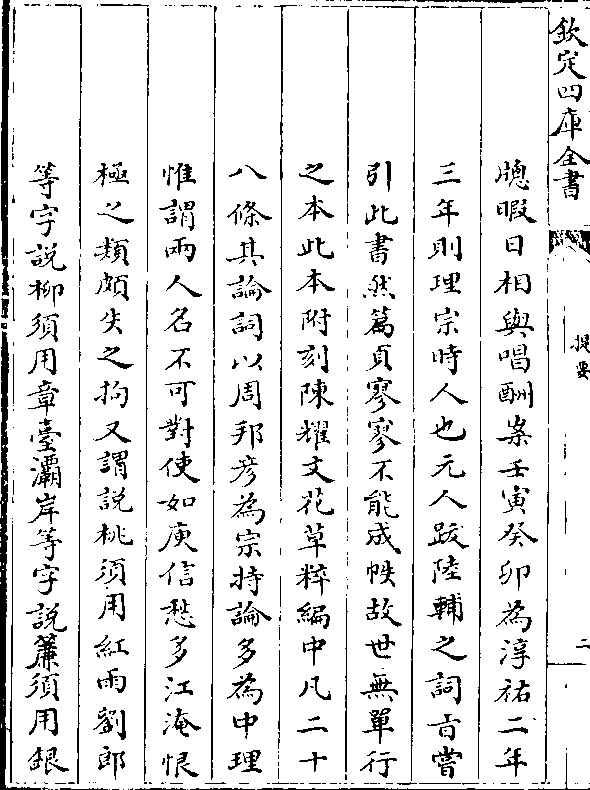 欽定四庫全書
提要
二
牕暇日相與唱酬案壬寅癸卯為淳祐二年
三年則理宗時人也元人跋陸輔之詞旨嘗
引此書然篇頁寥寥不能成帙故世無單行
之本此本附刻陳耀文花草粹編中凡二十
八條其論詞以周邦彥為宗持論多為中理
惟謂兩人名不可對使如庾信愁多江淹恨
極之類頗失之拘又謂說桃須用紅雨劉郎
等字說柳須用章臺灞岸等字說簾須用銀